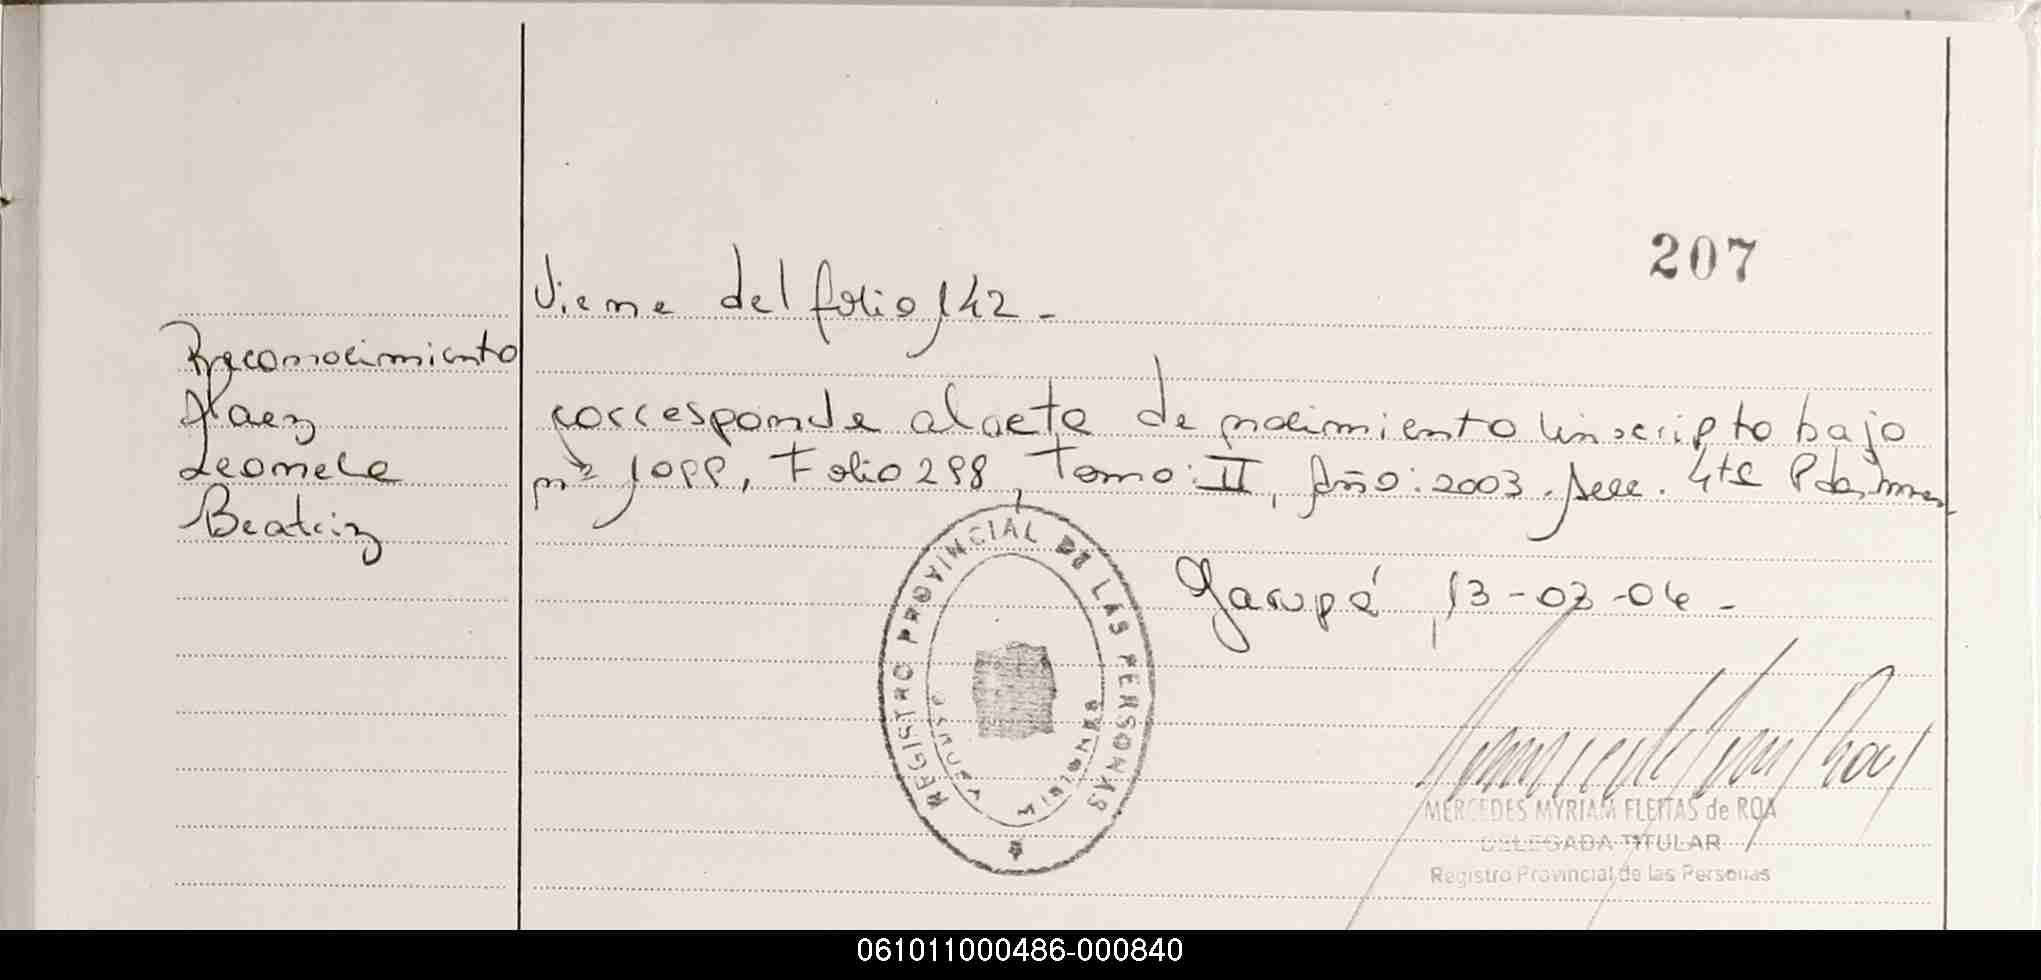 207
Viene del folio 142.-
Reconocimiento
Paez
Leonela
Beatriz
corresponde al acta de nacimiento inscripto bajo
nº Folio 298, Tomo: II, Año: 2003. Secc. 4ta Pdas,
Garupá, 13-02-04.-
REGISTRO PROVINCIAL DE LAS PERSONAS
GARUPA MISIONES
MERCEDES MYRIAM FLEITAS de ROA
DELEGADA TITULAR
Registro Provincial de las Personas
061011000486-000840